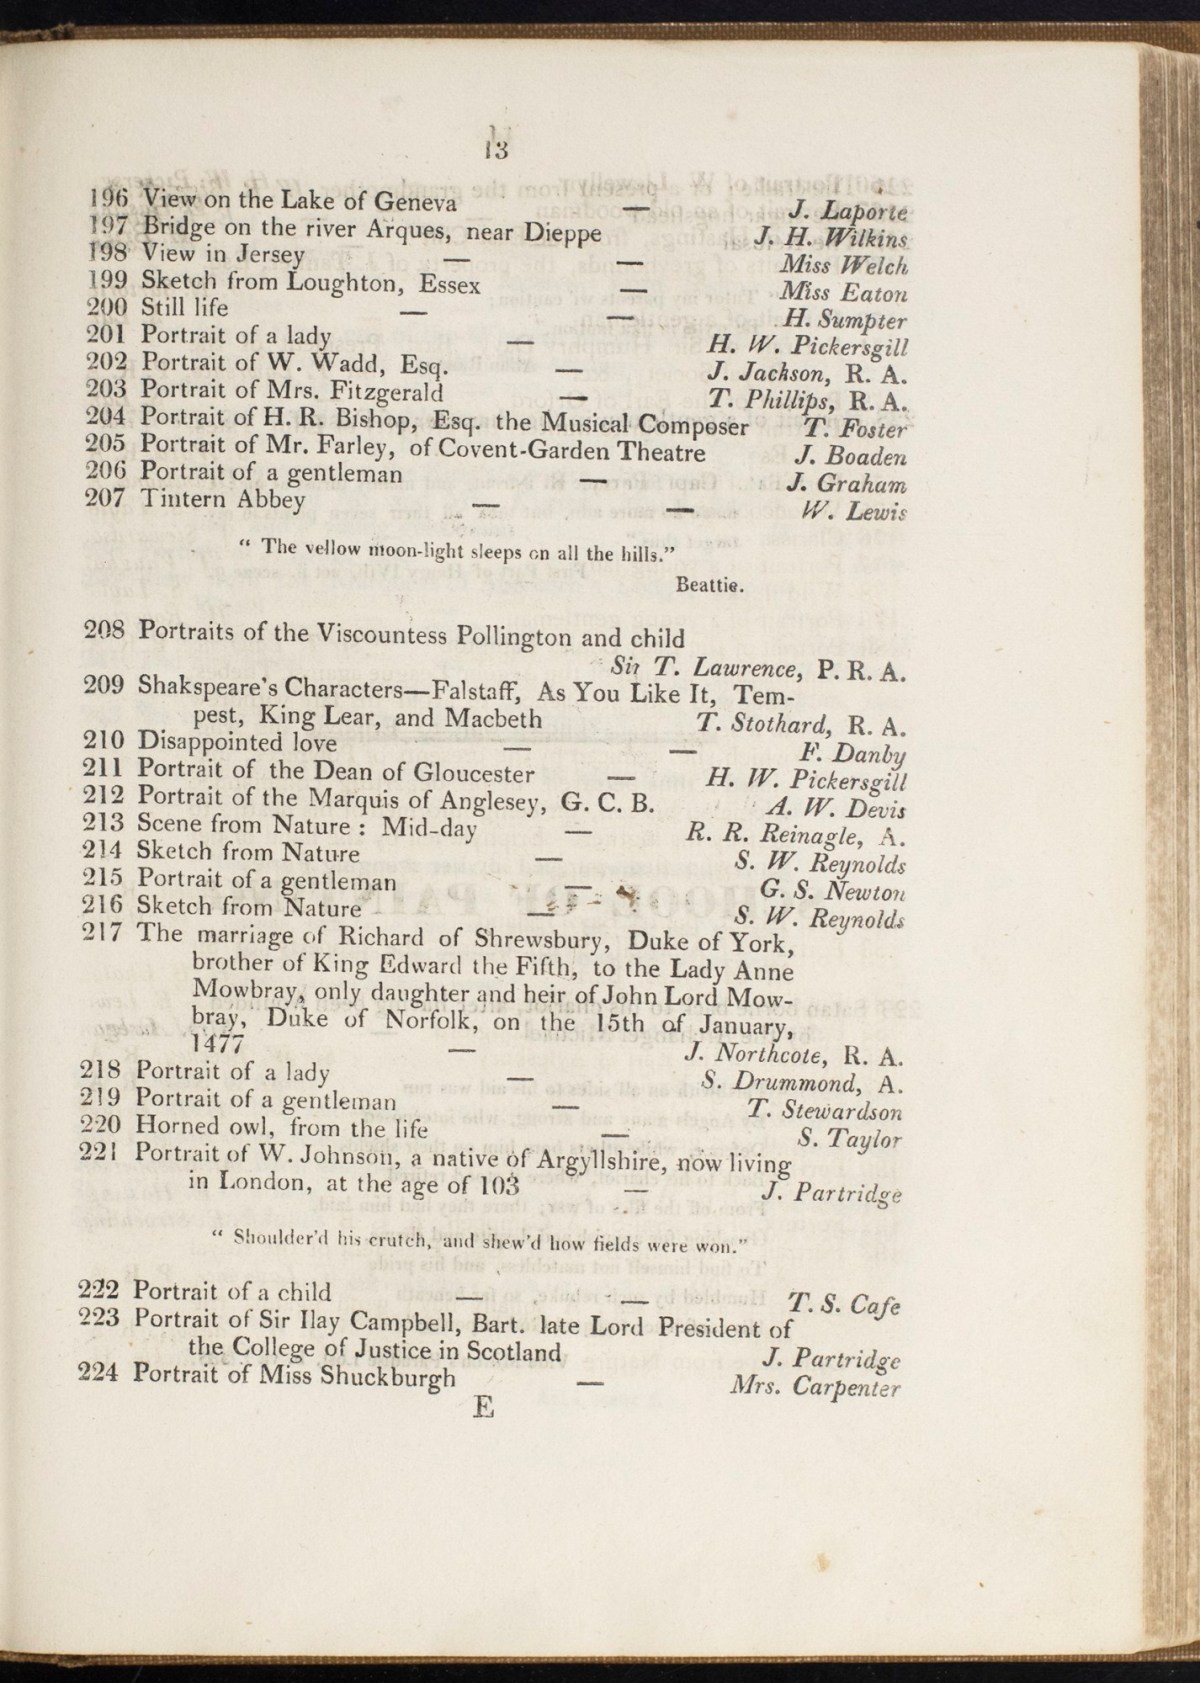 13
196 View on the Lake of Geneva — J. Laporte
197 Bridge on the river Arques, near Dieppe J. H. Wilkins
198 View in Jersey — — Miss Welch
199 Sketch from Loughton, Essex — Miss Eaton
200 Still life — — H. Sumpter
201 Portrait of a lady — H. W. Pickersgill
202 Portrait of W. Wadd, Esq. — J. Jackson, R. A.
203 Portrait of Mrs. Fitzgerald — T. Phillips, R. A.
204 Portrait of H. R. Bishop, Esq. the Musical Composer T. Foster
205 Portrait of Mr. Farley, of Covent-Garden Theatre J. Boaden
206 Portrait of a gentleman — J. Graham
207 Tintern Abbey — — W. Lewis
“ The yellow moon-light sleeps on all the hills.”
Beattie.
208 Portraits of the Viscountess Pollington and child
Sir T. Lawrence, P. R. A.
209 Shakspeare's Characters—Falstaff, As You Like It, Tem-
pest, King Lear, and Macbeth T. Stothard, R. A.
210 Disappointed love — — F. Danby
211 Portrait of the Dean of Gloucester — H. W. Pickersgill
212 Portrait of the Marquis of Anglesey, G. C. B. A. W. Devis
213 Scene from Nature : Mid-day — R. R. Reinagle, A.
214 Sketch from Nature — S. W. Reynolds
215 Portrait of a gentleman — G. S. Newton
216 Sketch from Nature — S. W. Reynolds
217 The marriage of Richard of Shrewsbury, Duke of York,
brother of King Edward the Fifth, to the Lady Anne
Mowbray, only daughter and heir of John Lord Mow-
bray, Duke of Norfolk, on the 15th of January,
1477 — J. Northcote, R. A.
218 Portrait of a lady — S. Drummond, A.
219 Portrait of a gentleman — T. Stewardson
220 Horned owl, from the life — S. Taylor
221 Portrait of W. Johnson, a native of Argyllshire, now living
in London, at the age of 103 — J. Partridge
“ Shoulder'd his crutch, and shew'd how fields were won.”
222 Portrait of a child — — T. S. Cafe
223 Portrait of Sir Ilay Campbell, Bart. late Lord President of
the College of Justice in Scotland J. Partridge
224 Portrait of Miss Shuckburgh — Mrs. Carpenter
E